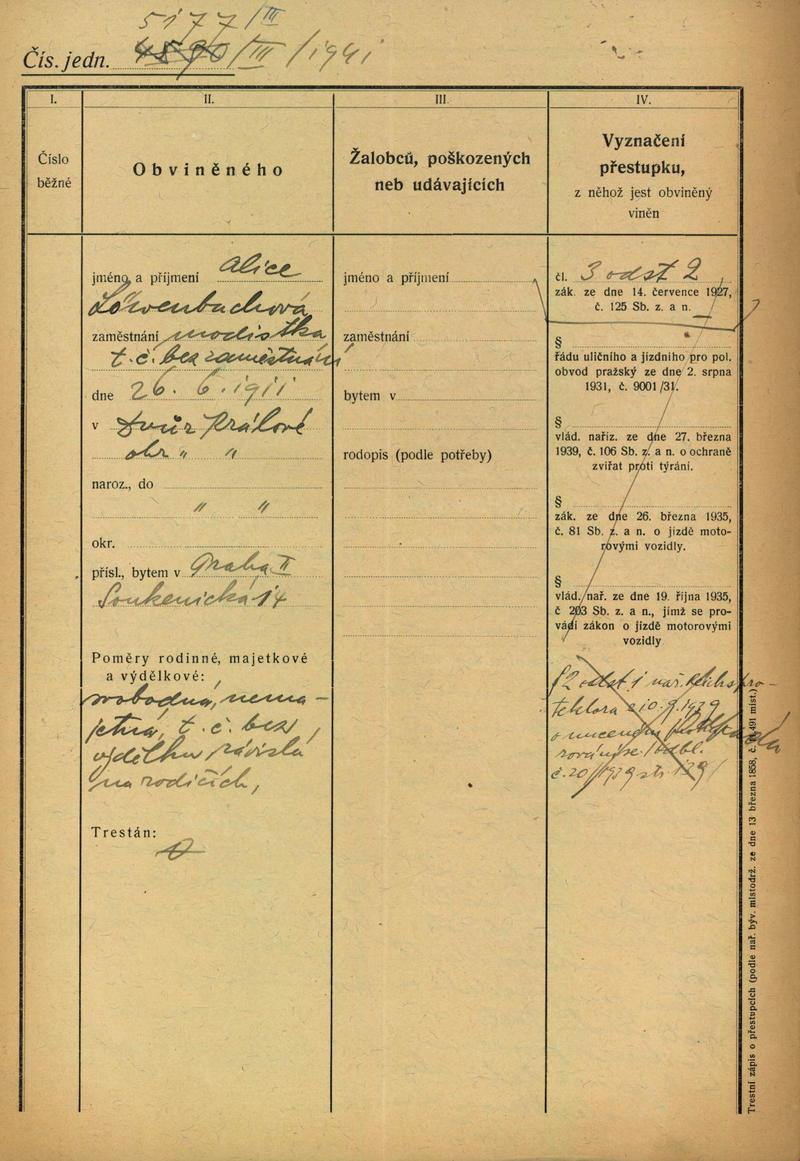 5177/III
Čís. jedn. 4590/III/1941
I.
II.
III.
IV.
Číslo
běžné
Obviněného
Žalobců, poškozených
neb udávajících
Vyznačení
přestupku,
z něhož jest obviněný
viněn
jméno a příjmení Alice
Löwenbachová
zaměstnání modistka
t. č. bez zaměstnání
dne 26. 6. 1911
v Dvůr Králové
okr. " "
naroz., do
" "
okr.
přísl., bytem v Praha II
Soukenická 14
Poměry rodinné, majetkové
a výdělkové:
svobodná, nema-
jetná, t. č. bez
výdělku, závislá
na rodičích,
Trestán:
0
jméno a příjmení
zaměstnání
bytem v
rodopis (podle potřeby)
čl. 3 odst 2
zák. ze dne 14. července 1927,
č. 125 Sb. z. a n.
§
řádu uličního a jízdního pro pol.
obvod pražský ze dne 2. srpna
1931, č. 9001/31.
§
vlád. naříz. ze dne 27. března
1939, č. 106 Sb. z. a n. o ochraně
zvířat proti týrání.
§
zák. ze dne 26. března 1935,
č. 81 Sb. z. a n. o jízdě moto-
rovými vozidly.
§
vlád. nař. ze dne 19. října 1935,
č 203 Sb. z. a n., jímž se pro-
vádí zákon o jízdě motorovými
vozidly
§2 odst 1 nař. říšs. pro-
tektora z 10. 9. 1939
č. 20/1939 str 129/
Trestní zápis o přestupcích (podle nař. býv. místodrž. ze dne 13 března 1858, č. 491 míst.)